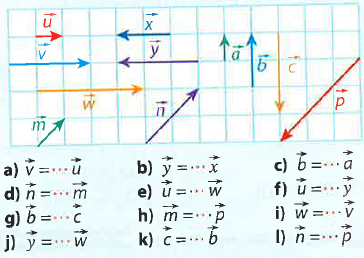 u x
v y a b c
w n p
m
a) v = ... u b) y = ... x c) b = ... a
d) n = ... m e) u = ... w f) u = ... y
g) b = ... c h) m = ... p i) w = ... v
j) y = ... w k) c = ... b l) n = ... p